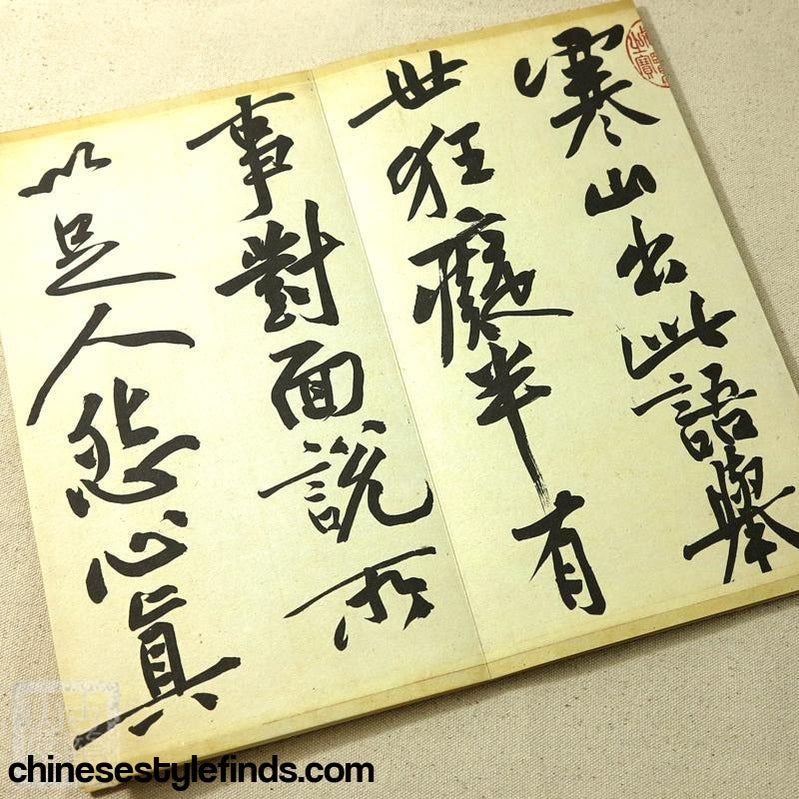 寒山出此語舉
世狂癡半有
事對面說所
以足人怨心真
chinesestylefinds.com